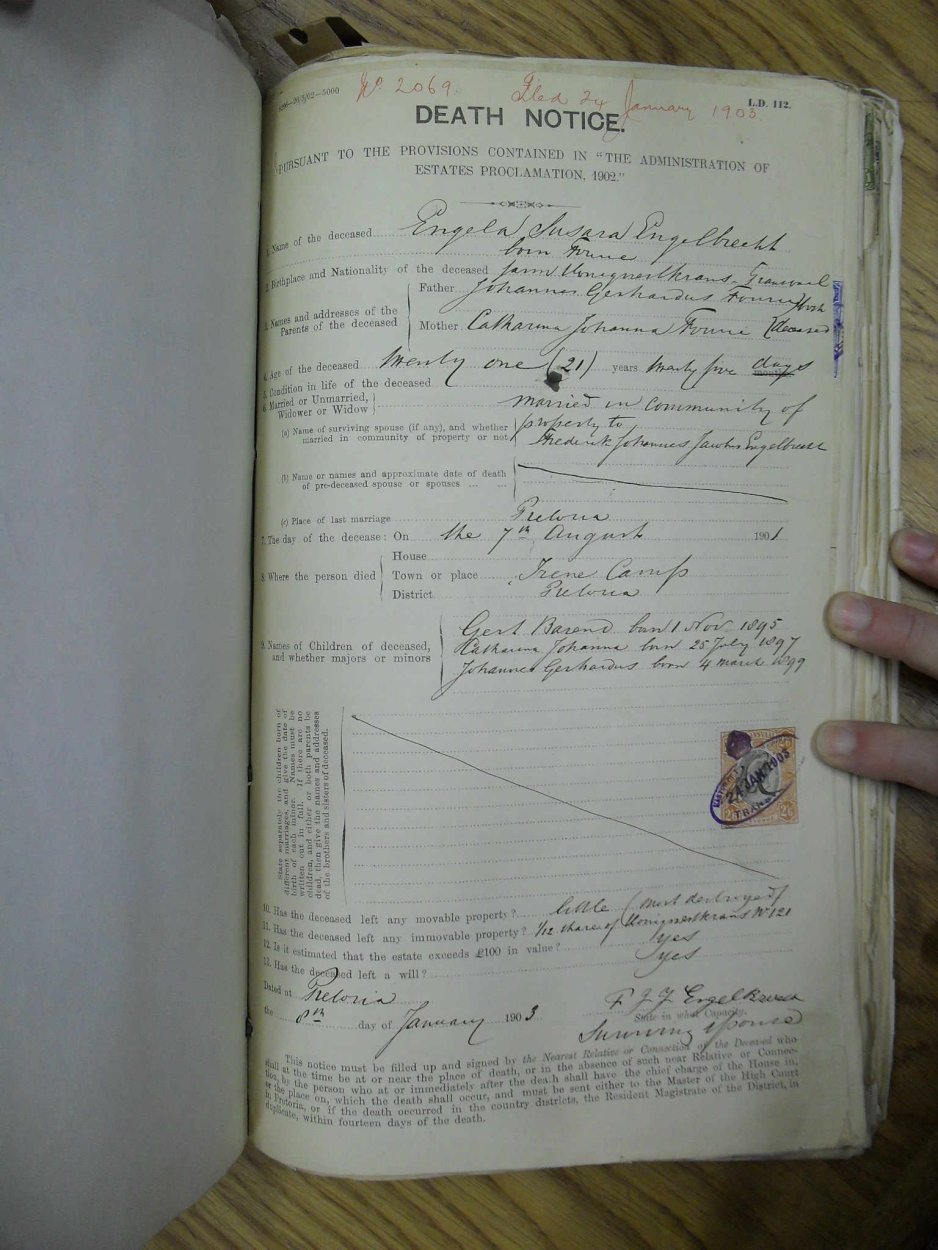 No. 2069. Filed 24 January 1903.
L.D. 112.
DEATH NOTICE.
PURSUANT TO THE PROVISIONS CONTAINED IN "THE ADMINISTRATION OF
ESTATES PROCLAMATION, 1902."
1. Name of the deceased Engela Susara Engelbrecht
born Fourie
2. Birthplace and Nationality of the deceased farm Honignestkrans, Transvaal
3. Names and addresses of the Parents of the deceased
Father Johannes Gerhardus Fourie } both
Mother Catharina Johanna Fourie { deceased
4. Age of the deceased twenty one (21) years twenty five days
months
5. Condition in life of the deceased
6. Married or Unmarried, Widower or Widow } married in community of
(a) Name of surviving spouse (if any), and whether married in community of property or not
property to
Frederik Johannes Engelbrecht
(b) Name or names and approximate date of death
of pre-deceased spouse or spouses ... ...
(c) Place of last marriage Pretoria
7. The day of the decease: On the 7th August 1901
8. Where the person died
House
Town or place Irene Camp
District Pretoria
9. Names of Children of deceased,
and whether majors or minors
Gert Barend born 1 Nov. 1895
Katharina Johanna born 25 July 1897
Johannes Gerhardus born 4 march 1899
State separately the children born of
different marriages, and give the date of
birth of each minor. Names must be
written out in full. If there are no
children, and either or both parents be
dead, then give the names and addresses
of the brothers and sisters of deceased.
24 JAN 1903
10. Has the deceased left any movable property? little (most destroyed)
11. Has the deceased left any immovable property? 1/12 share of Honignestkrans No 121
12. Is it estimated that the estate exceeds £100 in value? yes
13. Has the deceased left a will? yes
Dated at Pretoria
the 8th day of January 1903
F J J Engelbrecht
State in what Capacity.
Surviving spouse
This notice must be filled up and signed by the Nearest Relative or Connection of the Deceased who
shall at the time be at or near the place of death, or in the absence of such near Relative or Connec-
tion, by the person who at or immediately after the death shall have the chief charge of the House in,
or the place on, which the death shall occur, and must be sent either to the Master of the High Court
in Pretoria, or if the death occurred in the country districts, the Resident Magistrate of the District, in
duplicate, within fourteen days of the death.